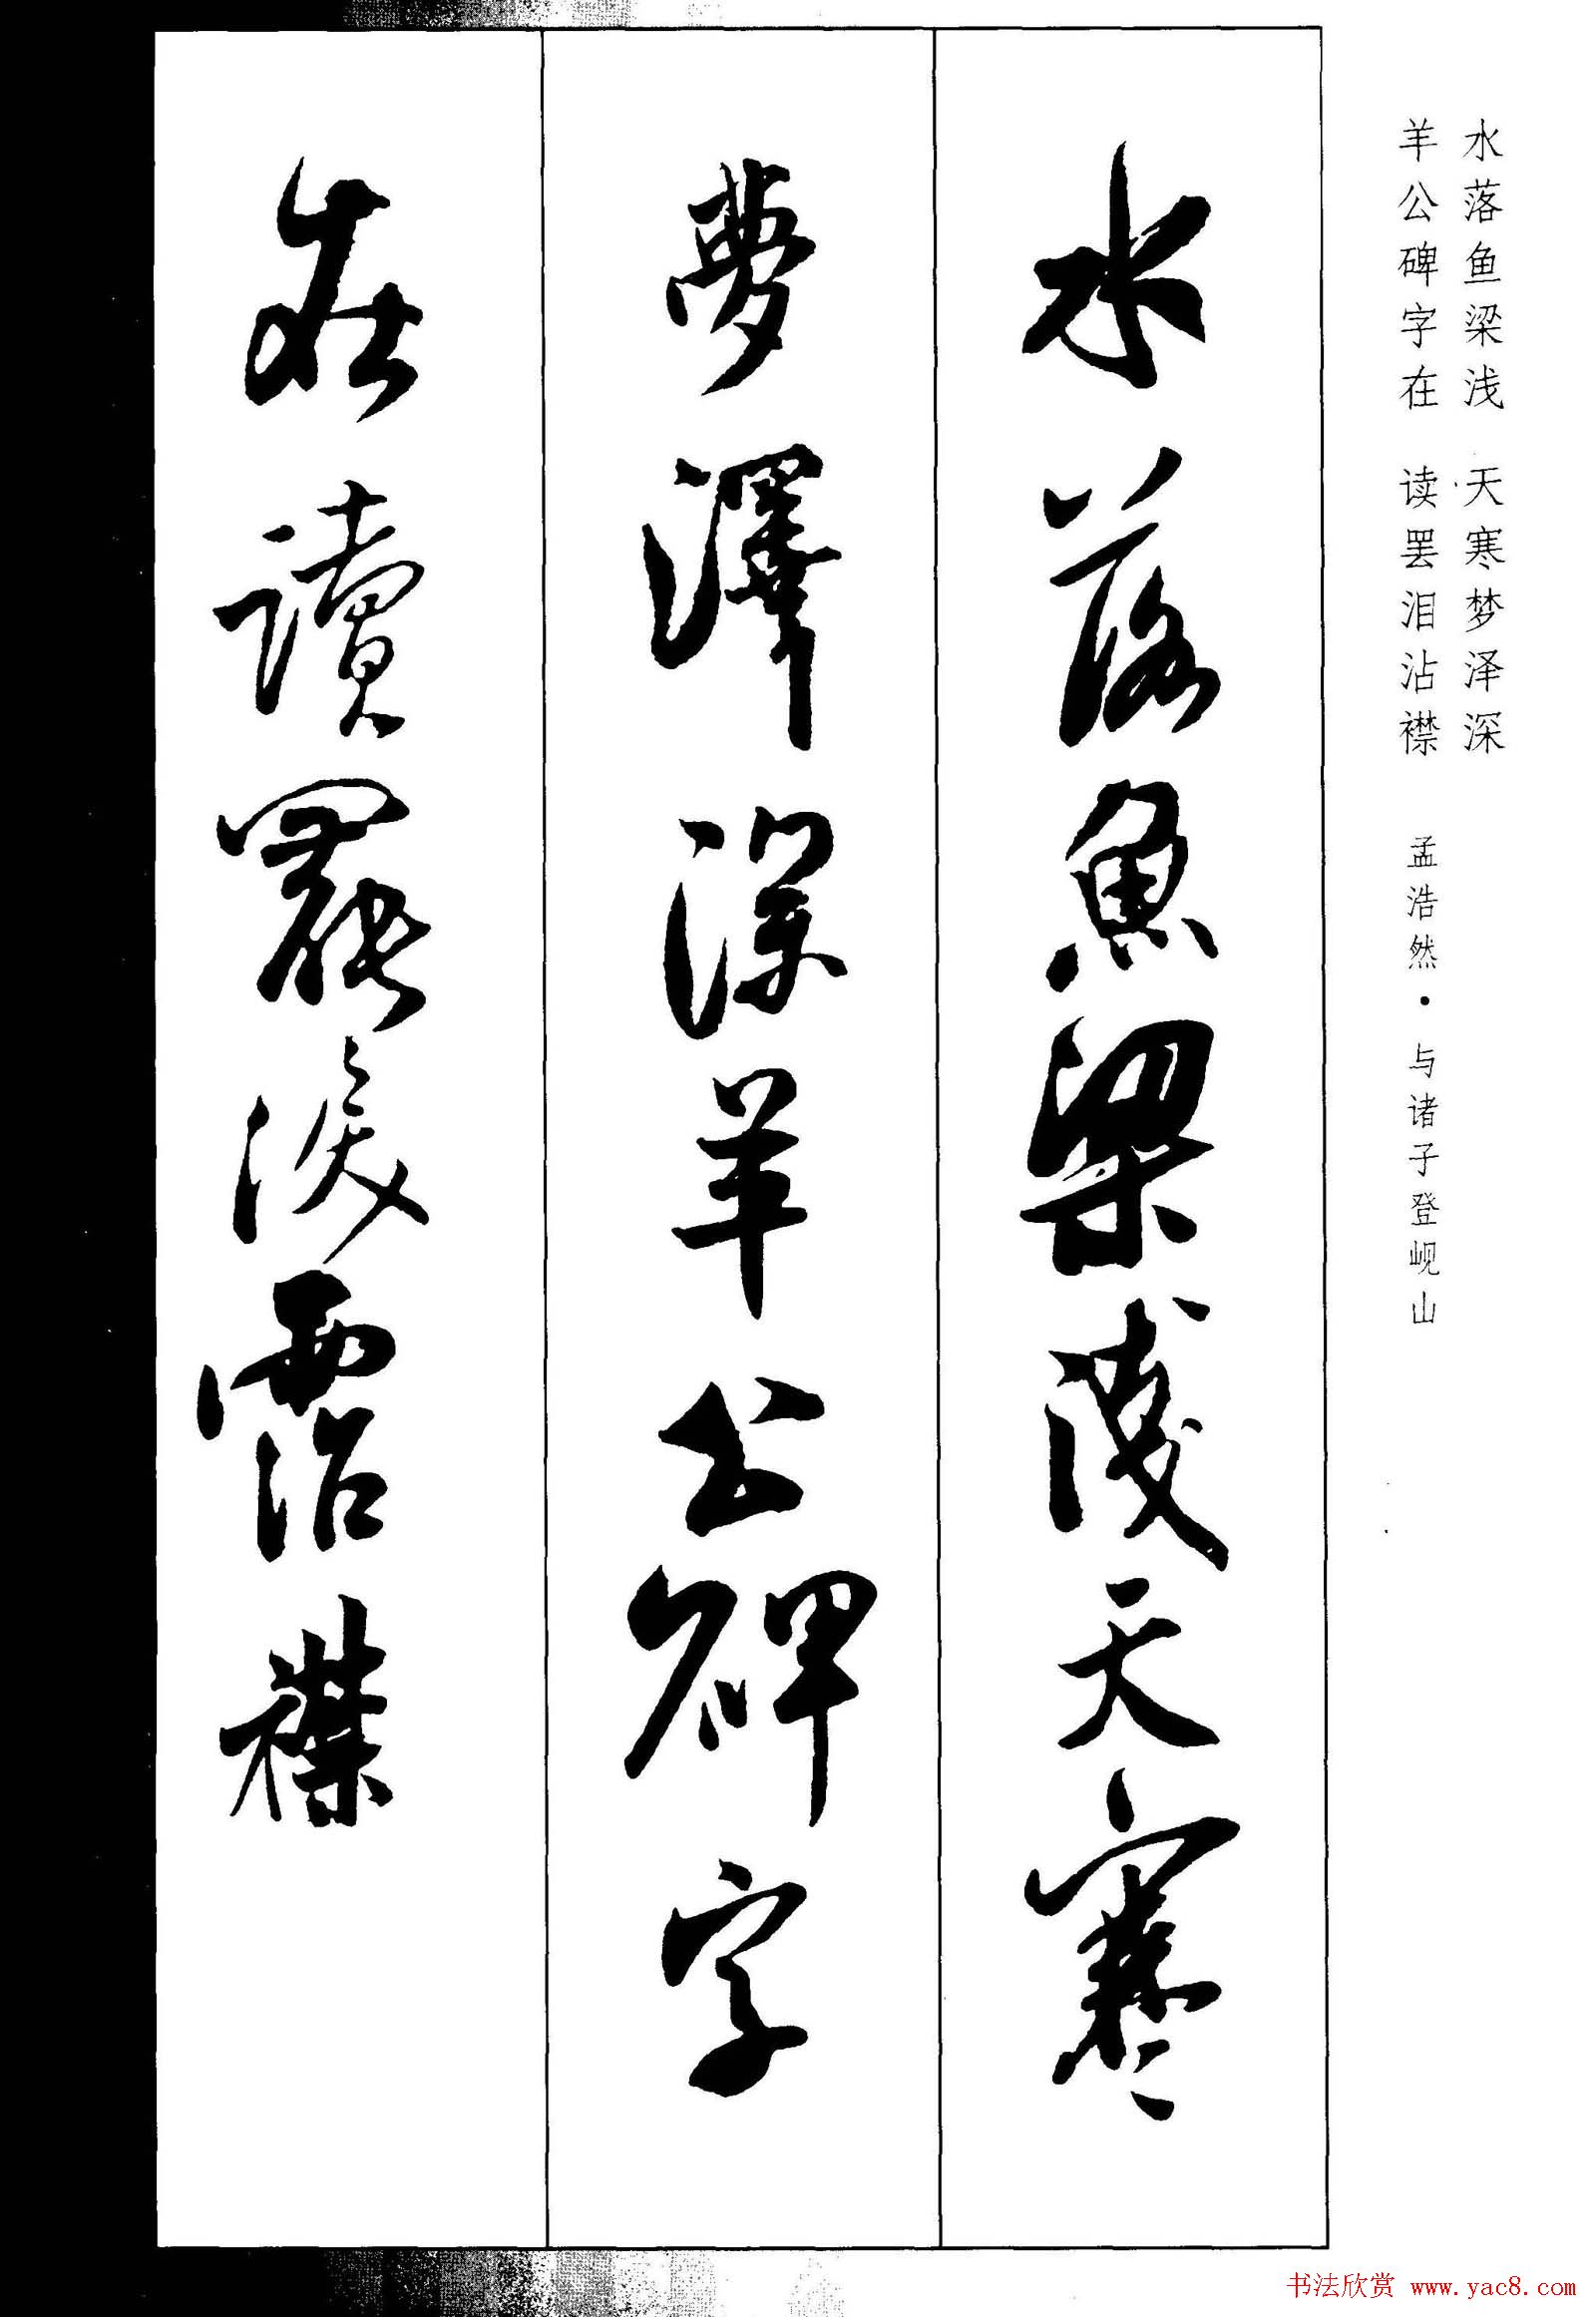 水落鱼梁浅 天寒梦泽深
羊公碑字在 读罢泪沾襟
孟浩然·与诸子登岘山
水落魚梁淺天寒
夢澤深羊公碑字
在讀罷淚霑襟
书法欣赏 www.yac8.com